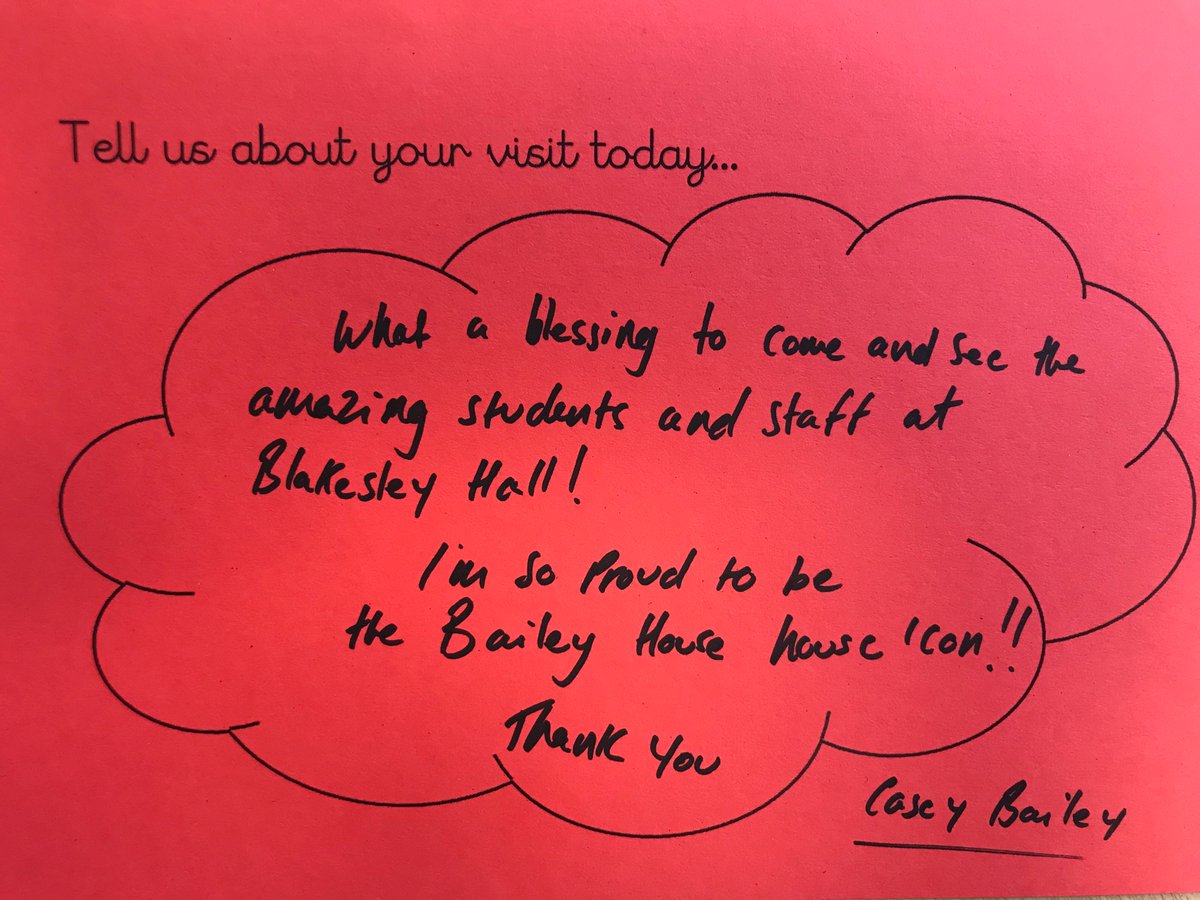 Tell us about your visit today...
What a blessing to come and see the
amazing students and staff at
Blakesley Hall!
I'm so Proud to be
the Bailey House house 'con!!
Thank You
Casey Bailey